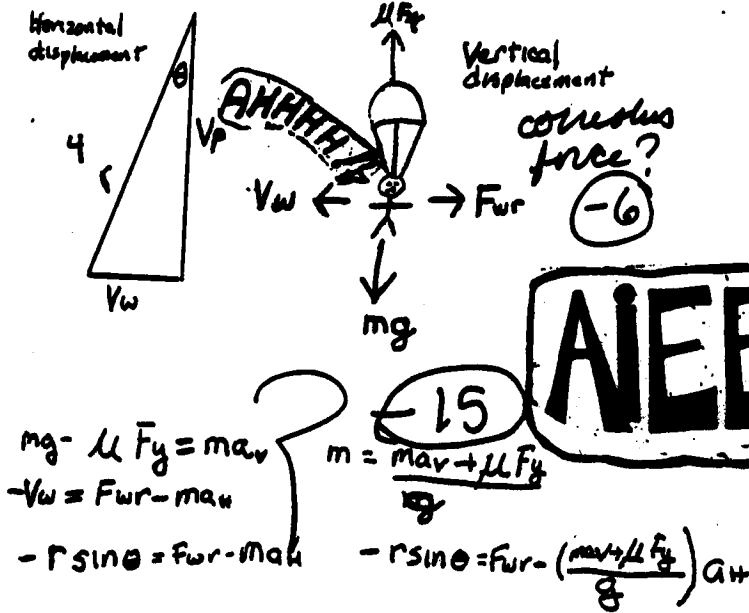 Horizontal
displacement
θ
4
r
Vp
Vw
AHHHH
μFy
Vertical
displacement
force?
-6
Vw
Fwr
mg
AiEE
-15
mg- μFy = mav
-Vw = Fwr-maH
-r sinθ = Fwr-maH
m = mav+μFy
g
-r sinθ = Fwr-(mav+μFy
g) aH